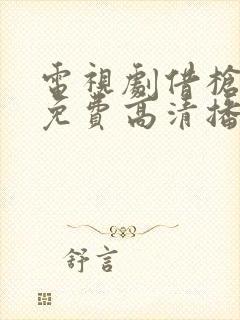 電視劇借槍
免費高清播
舒言